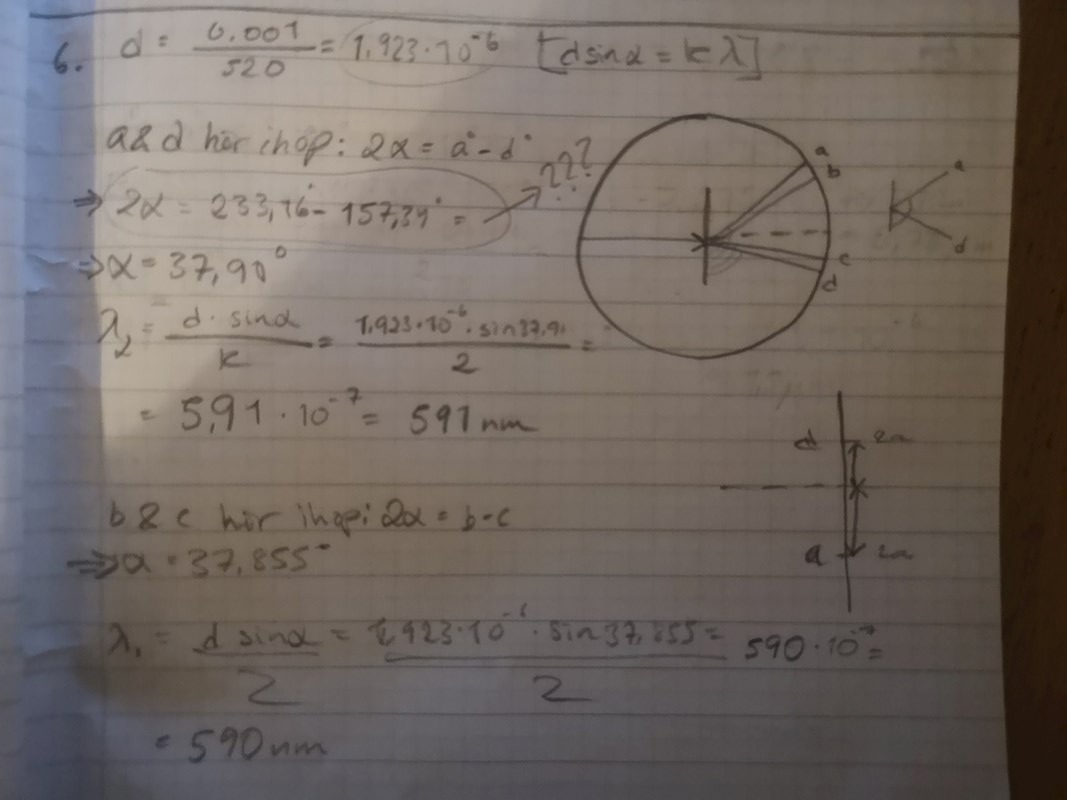 6. d = 0.001/520 = 1.923·10⁻⁶ [d sinα = kλ]
a & d hör ihop: 2α = a° - d°
⇒ 2α = 233,16° - 157,34° = → ???
⇒ α = 37,90°
λ₂ = d · sinα / k = 1.923·10⁻⁶ · sin37,91 / 2 =
= 5,91 · 10⁻⁷ = 591 nm
b & c hör ihop: 2α = b - c
⇒ α = 37,855°
λ₁ = d sinα / 2 = 1,923·10⁻⁶ · sin37,855 / 2 = 590·10⁻⁹ =
= 590 nm
a
b
c
d
a
d
d
a